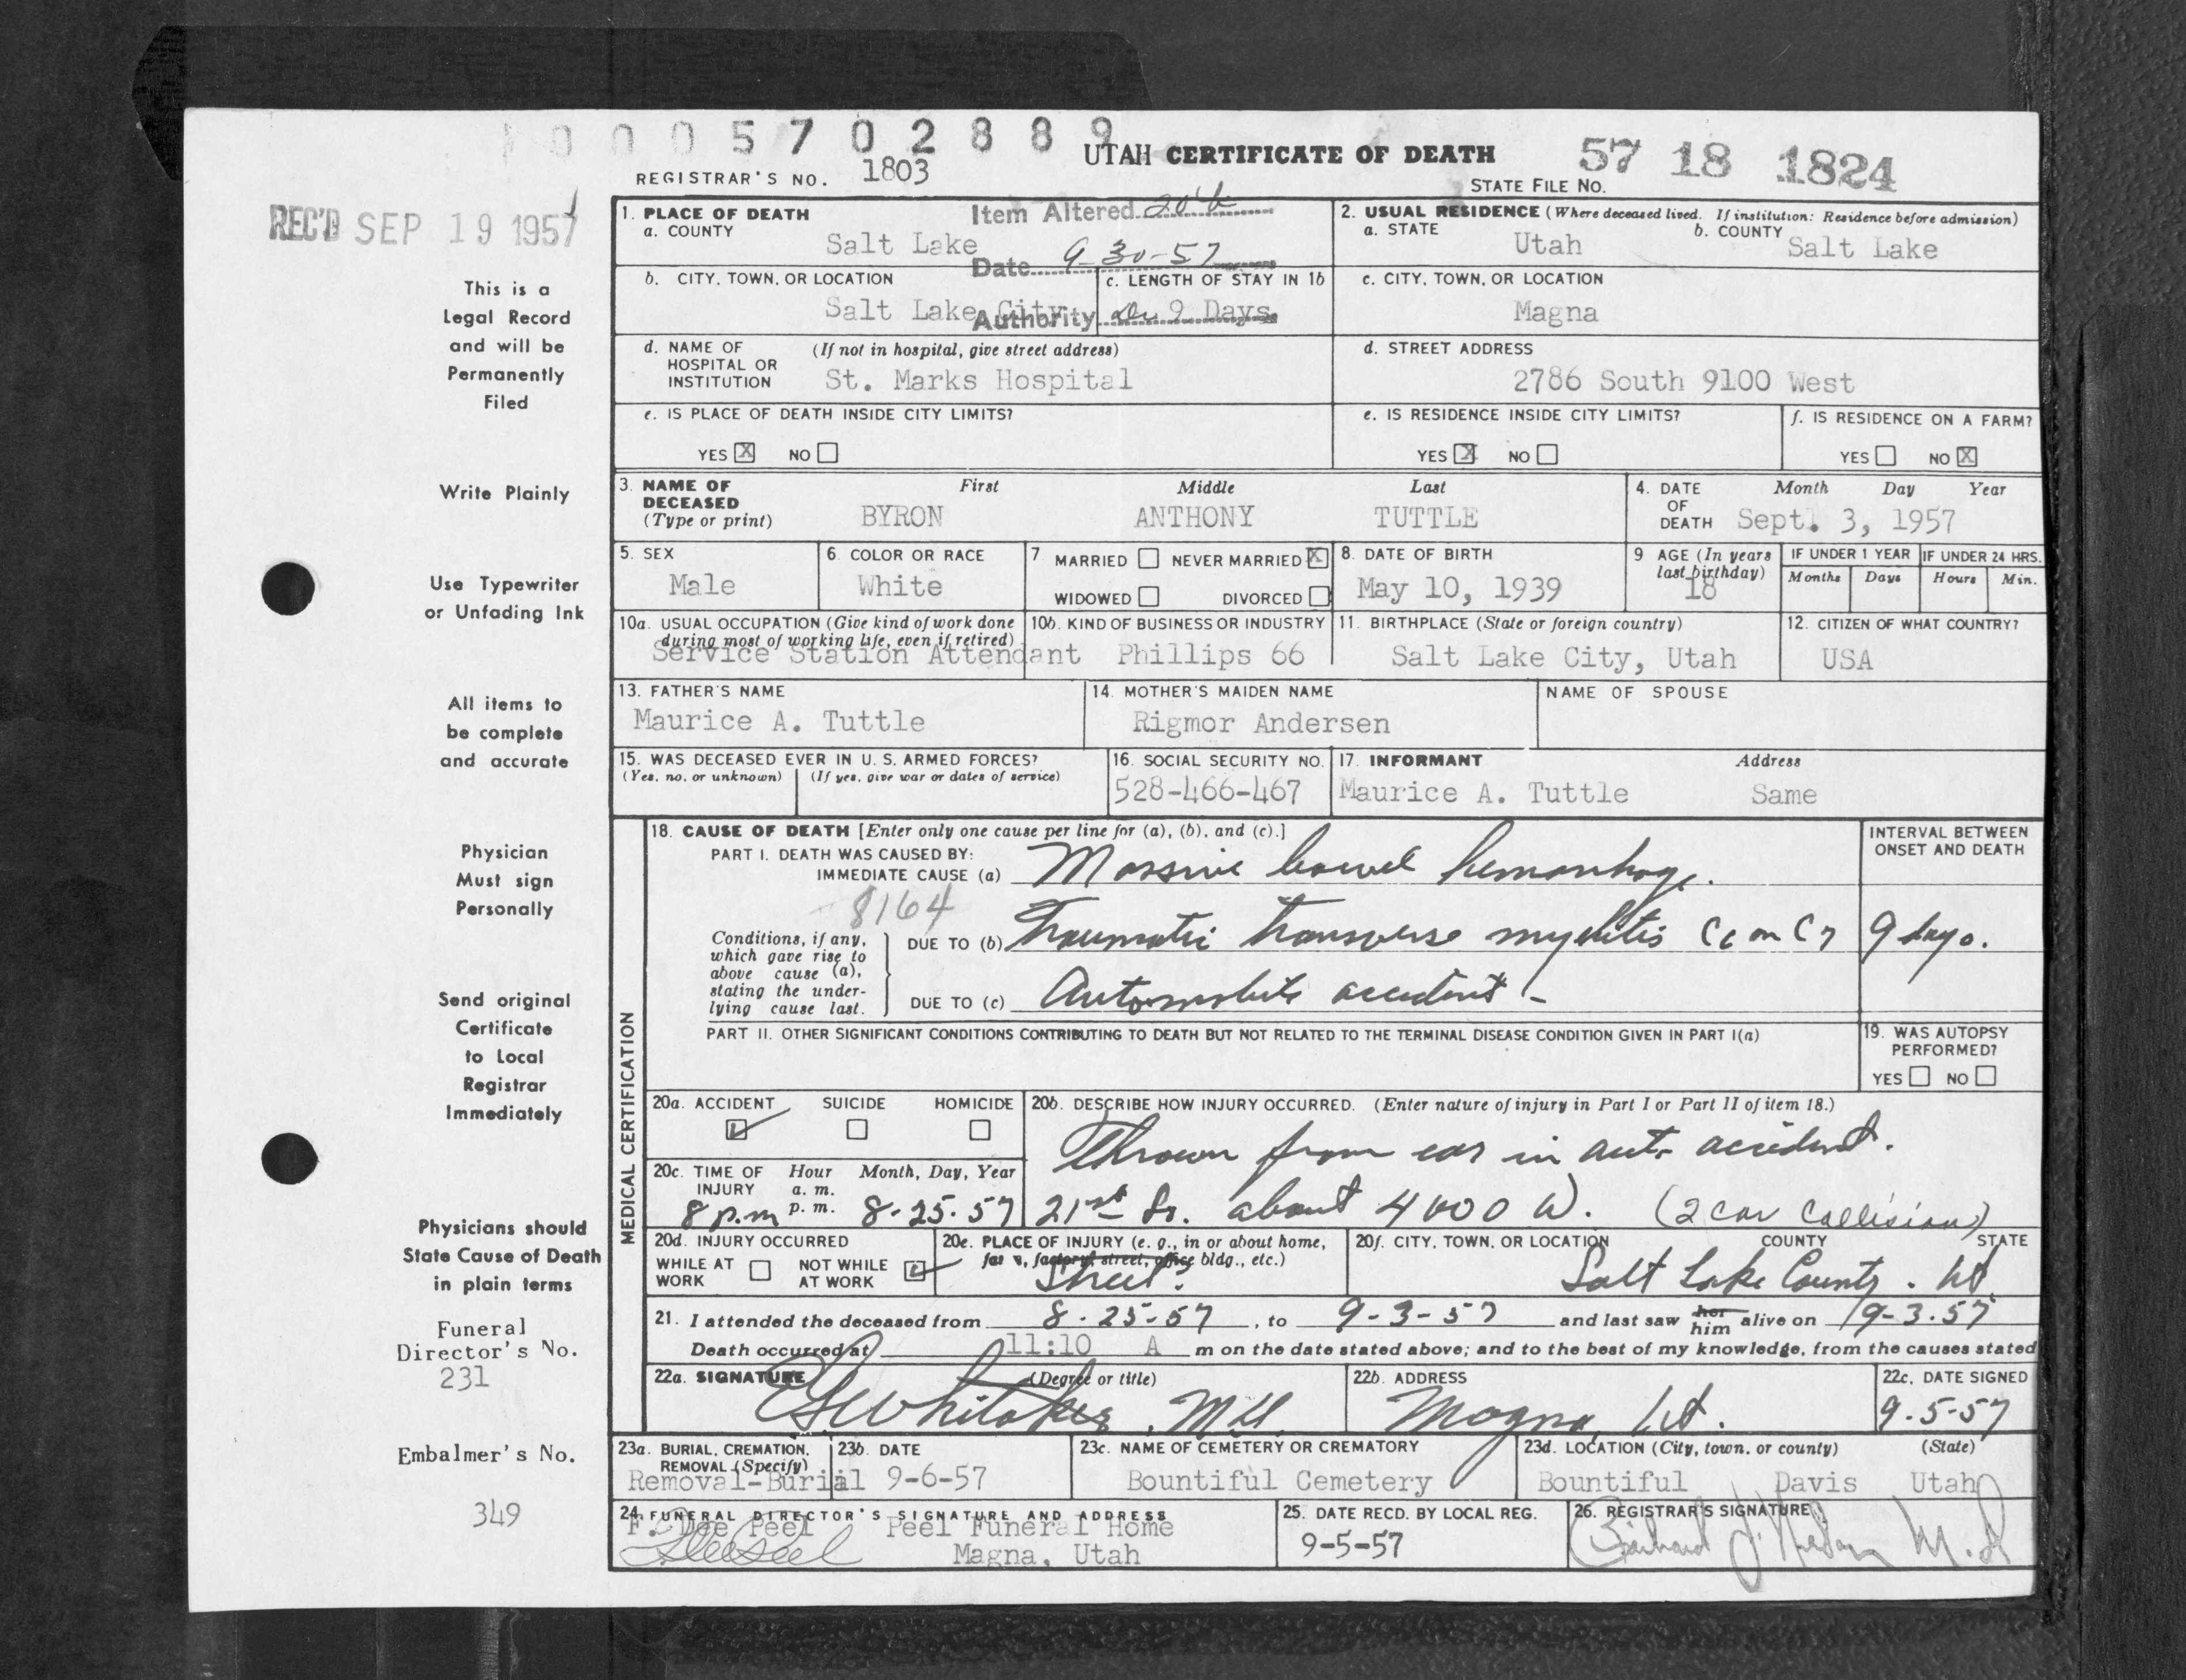 0 0 0 5 7 0 2 8 8 9
UTAH CERTIFICATE OF DEATH
57 18 1824
REGISTRAR'S NO. 1803
STATE FILE NO.
REC'D SEP 19 1957
This is a
Legal Record
and will be
Permanently
Filed
Write Plainly
Use Typewriter
or Unfading Ink
All items to
be complete
and accurate
Physician
Must sign
Personally
Send original
Certificate
to Local
Registrar
Immediately
Physicians should
State Cause of Death
in plain terms
Funeral
Director's No.
231
Embalmer's No.
349
1. PLACE OF DEATH
a. COUNTY
Salt Lake
Item Altered 20b
Date 9-30-57
Authority Dr
2. USUAL RESIDENCE (Where deceased lived. If institution: Residence before admission)
a. STATE Utah
b. COUNTY Salt Lake
b. CITY, TOWN, OR LOCATION
Salt Lake City
c. LENGTH OF STAY IN 1b
9 Days
c. CITY, TOWN, OR LOCATION
Magna
d. NAME OF HOSPITAL OR INSTITUTION (If not in hospital, give street address)
St. Marks Hospital
d. STREET ADDRESS
2786 South 9100 West
e. IS PLACE OF DEATH INSIDE CITY LIMITS?
YES X NO
e. IS RESIDENCE INSIDE CITY LIMITS?
YES X NO
f. IS RESIDENCE ON A FARM?
YES NO X
3. NAME OF DECEASED (Type or print)
First Middle Last
BYRON ANTHONY TUTTLE
4. DATE OF DEATH Month Day Year
Sept. 3, 1957
5. SEX
Male
6. COLOR OR RACE
White
7 MARRIED NEVER MARRIED X
WIDOWED DIVORCED
8. DATE OF BIRTH
May 10, 1939
9 AGE (In years last birthday)
18
IF UNDER 1 YEAR
Months Days
IF UNDER 24 HRS.
Hours Min.
10a. USUAL OCCUPATION (Give kind of work done during most of working life, even if retired)
Service Station Attendant
10b. KIND OF BUSINESS OR INDUSTRY
Phillips 66
11. BIRTHPLACE (State or foreign country)
Salt Lake City, Utah
12. CITIZEN OF WHAT COUNTRY?
USA
13. FATHER'S NAME
Maurice A. Tuttle
14. MOTHER'S MAIDEN NAME
Rigmor Andersen
NAME OF SPOUSE
15. WAS DECEASED EVER IN U. S. ARMED FORCES?
(Yes, no, or unknown) (If yes, give war or dates of service)
16. SOCIAL SECURITY NO.
528-466-467
17. INFORMANT Address
Maurice A. Tuttle Same
MEDICAL CERTIFICATION
18. CAUSE OF DEATH [Enter only one cause per line for (a), (b), and (c).]
INTERVAL BETWEEN ONSET AND DEATH
PART I. DEATH WAS CAUSED BY:
IMMEDIATE CAUSE (a) Massive bowel hemorrhage.
8164
Conditions, if any, which gave rise to above cause (a), stating the underlying cause last.
DUE TO (b) Traumatic transverse myelitis C6 on C7 9 days.
DUE TO (c) Automobile accident -
PART II. OTHER SIGNIFICANT CONDITIONS CONTRIBUTING TO DEATH BUT NOT RELATED TO THE TERMINAL DISEASE CONDITION GIVEN IN PART I(a)
19. WAS AUTOPSY PERFORMED?
YES NO
20a. ACCIDENT SUICIDE HOMICIDE
20b. DESCRIBE HOW INJURY OCCURRED. (Enter nature of injury in Part I or Part II of item 18.)
Thrown from car in auto accident.
21st So. about 4000 W. (2 car Collision)
20c. TIME OF INJURY Hour a. m. p. m. Month, Day, Year
8 p.m 8-25-57
20d. INJURY OCCURRED
WHILE AT WORK NOT WHILE AT WORK
20e. PLACE OF INJURY (e. g., in or about home, farm, factory, street, office bldg., etc.)
Street.
20f. CITY, TOWN, OR LOCATION COUNTY STATE
Salt Lake County. Ut
21. I attended the deceased from 8-25-57, to 9-3-57 and last saw her him alive on 9-3-57
Death occurred at 11:10 A m on the date stated above; and to the best of my knowledge, from the causes stated
22a. SIGNATURE (Degree or title)
Whitaker, M.D.
22b. ADDRESS
Magna, Ut.
22c. DATE SIGNED
9-5-57
23a. BURIAL, CREMATION, REMOVAL (Specify)
Removal-Burial
23b. DATE
9-6-57
23c. NAME OF CEMETERY OR CREMATORY
Bountiful Cemetery
23d. LOCATION (City, town, or county) (State)
Bountiful Davis Utah
24. FUNERAL DIRECTOR'S SIGNATURE AND ADDRESS
F. Dee Peel Peel Funeral Home
Magna, Utah
25. DATE RECD. BY LOCAL REG.
9-5-57
26. REGISTRAR'S SIGNATURE